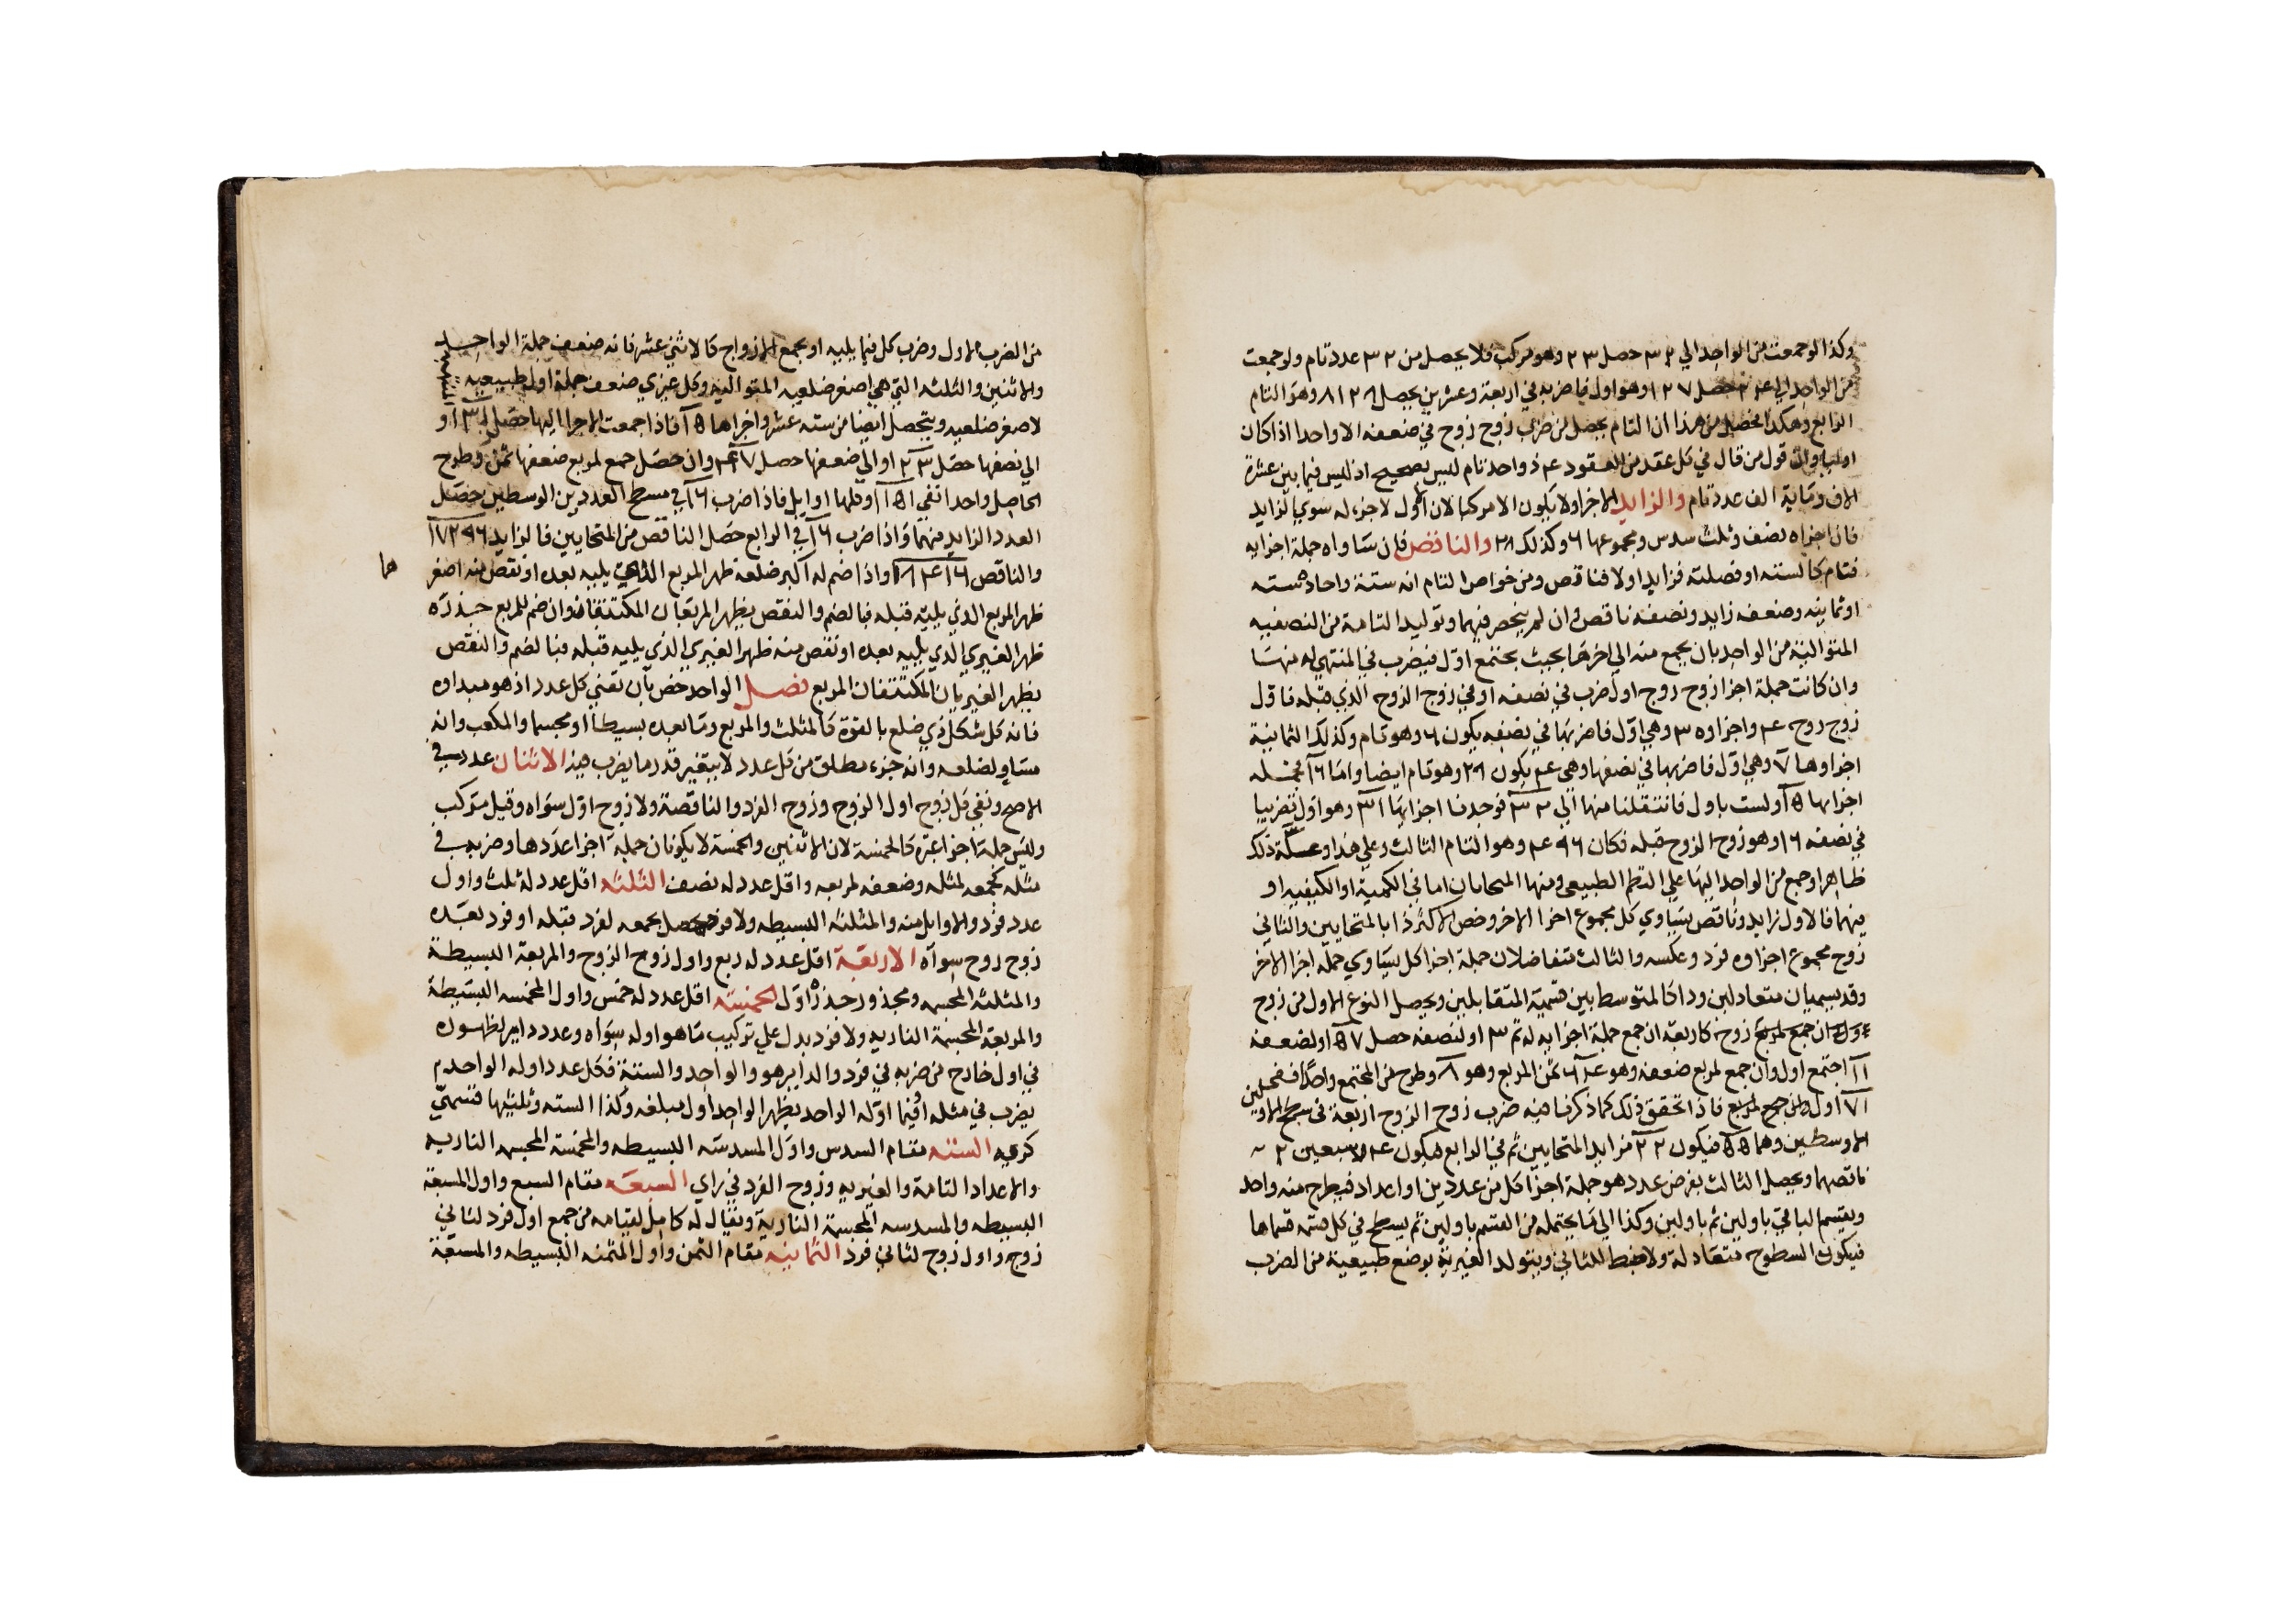 وكذا لو جمعت من الواحد الي ٣٢ حصل ٦٣ وهو مركب فلا يحصل من ٣٢ عدد تام ولو جمعت
من الواحد الي ٦٤ حصل ١٢٧ وهو اول فاضربه في اربعة وعشرين يحصل ٨١٢٨ وهو التام
الرابع وهكذا المحصل من هذا ان التام يحصل من ضرب زوج زوج في ضعفه الا واحدا اذا كان
اولا وان قول من قال في كل عقد من العقود عدد واحد تام ليس بصحيح اذ ليس فيما بين عشرة
الاف ومايه الف عدد تام والزايد الاجزا ولا يكون الا مركبا لان الاول لا جزء له سوي الزايد
فان اجزاه نصف وثلث سدس ومجموعها ٦ وكذلك ٢٨ والناقص فان ساواه جملة اجزايه
فتام كالسته او فضلته فزايد اولا فناقص ومن خواص التام انه ستة واحاده سته
او ثمانيه وضعفه زايد ونصفه ناقص وان لم ينحصر فيهما وتوليد التامة من النصفيه
المتوالية من الواحد بان يجمع منه الي اخرها بحيث يجتمع اول فيضرب في المنتهي له منها
وان كانت جملة اجزا زوج زوج اول ضرب في نصفه او في زوج الزوج الذي قبله فاول
زوج زوج ٤ واجزاوه ٣ وهي اول فاضربها في نصفه يكون ٦ وهو تام وكذلك الثمانية
اجزاوها ٧ وهي اول فاضربها في نصفها وهي ٤ يكون ٢٨ وهو تام ايضا واما ١٦ فجملة
اجزايها ١٥ وليست باول فانتقلنا منها الي ٣٢ فوجدنا اجزايها ٣١ وهو اول تضربها
في نصفه ١٦ وهو زوج الزوج قبله فكان ٤٩٦ وهو التام الثالث وعلي هذا وعلة ذلك
ظاهرا وجمع من الواحد اليها علي النظم الطبيعي ومنها المتحابان اما في الكمية او الكيفيه او
فيهما فالاول زايد وناقص يساوي كل مجموع اجزا الاخر وخص الاكثر ذا بالمتحابين والثاني
زوج مجموع اجزاوه فرد وعكسه والثالث متفاضلان جملة اجزا كل يساوي جملة اجزا الاخر
وقد يسميان متعادلين وذا كالمتوسط بين قسمية المتقابلين ويحصل النوع الاول من زوج
زوج كاربعة ان جمع جملة اجزايه له ثم ٣ او لنصفه حصل ٥٧ او لضعفه
١١ اجتمع اول وان جمع لمربع ضعفه وهو ٦٤ ثمن المربع وهو ٨ وطرح من المجتمع واحدا فحصلين
٧١ اول فاذا تحقق ذلك كما ذكرنا فيه ضرب زوج الزوج اربعة في سطح الاولين
الاوسطين وهما ٥٥ فيكون ٢٢٠ زايد المتحابين ثم في الرابع فيكون
ناقصهما ويحصل الثالث بفرض عدد هو جملة اجزا كل من عددين او اعداد فيطرح منه واحد
ويقسم الباقي باولين ثم باولين وكذا الي ما يحتمله من القسم باولين ثم يسطح في كل قسمه قسماها
فيكون السطوح متعادلة ولا ضبط للثاني ويتولد الغيرية بوضع طبيعية من الضرب
من الضرب الاول وضرب كل فيما يليه او بجمع الازواج كالاثني عشر فانه ضعف جملة الواحد
والاثنين والثلثه التي هي اصغر ضلعيه المتواليه وكل غيري ضعف جملة اول طبيعيه
لاصغر ضلعيه ويتحصل ايضا من سته عشر واجزاها ١٥ فاذا جمعت الاجزا اليها حصل ٣١ او
الي نصفها حصل ٢٣ او الي ضعفها حصل ٤٧ وان حصل جمع لمربع ضعفها ثمن وطرح
الحاصل واحدا نفي ١١٥١ وكلها اوايل فاذا ضرب ١٦ في مسطح العددين الوسطين حصل
العدد الزايد منهما واذا ضرب ١٦ في الرابع حصل الناقص من المتحابين فالزايد ١٧٢٩٦
والناقص ١٨٤١٦ واذا ضم له اكبر ضلعه ظهر المربع الذي يليه بعده او نقص منه اصغر
ظهر المربع الذي يليه قبله فبالضم والنقص يظهر المربعان المكتنفان وان ضم للمربع جذره
ظهر الغيري الذي يليه بعده او نقص منه ظهر الغيري الذي يليه قبله فبالضم والنقص
يظهر الغيريان المكتنفان المربع فصل الواحد خص بان تفني كل عدد اذ هو مبداوه
فانه كل شكل ذي ضلع بالقوة كالمثلث والمربع وما بعده بسيطا او مجسما والمكعب وانه
مساو لضلعه وانه جزء مطلق من كل عدد لا يتغير قدر ما يضرب فيه الاثنان عدد في
الاصح ونفي كل زوج اول الزوج وزوج الفرد والناقصة ولا زوج اول سواه وقيل مركب
وليس جملة اجزا غيره كالخمسة لان الاثنين والخمسة لا يكونان جملة اجزا عددها وضربه في
مثله كجمعه لمثله وضعفه لمربعه واقل عدد له نصف الثلثه اقل عدد له ثلث واول
عدد فرد والاوايل منه والمثلثه البسيطه ولا فرد يحصل بجمعه لفرد قبله او فرد بعده
زوج زوج سواه الاربعة اقل عدد له ربع واول زوج الزوج والمربعة البسيطة
والمثلثه المجسمه ومجذور جذره اول الخمسه اقل عدد له خمس واول المخمسه البسيطة
والمربعة المجسمة الناريه ولا فرد يدل علي تركيب ما هو اوله سواه وعدد داير لظهوره
في اول خارج من ضربه في فرد والداير هو والواحد والستة فكل عدد اوله الواحد
يضرب في مثله او فيما اوله الواحد يظهر الواحد اول مبلغه وكذا السته ومثليها فتسمي
كرويه السته مقام السدس واول المسدسه البسيطه والمخمسة المجسمه الناريه
والاعداد التامة والغيريه وزوج الفرد في راي السبعه مقام السبع واول المسبعة
البسيطه والمسدسه المجسمة النارية ويقال له كامل لقيامه من جمع اول فرد لثاني
زوج واول زوج لثاني فرد الثمانيه مقام الثمن واول المثمنه البسيطه والمسبعة